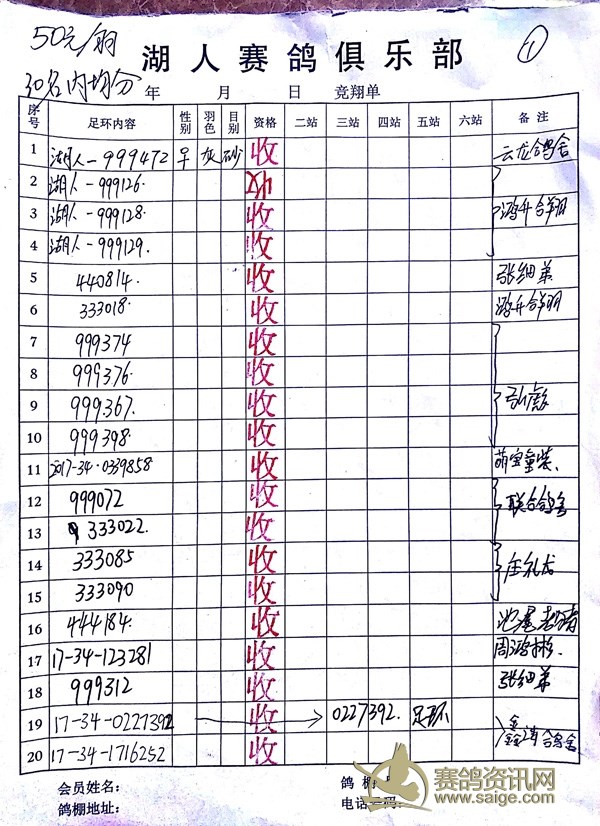 50元/羽
湖人赛鸽俱乐部
①
30名内均分
年 月 日 竞翔单
序号 足环内容 性别 羽色 目别 资格 二站 三站 四站 五站 六站 备注
1 湖人-999472 灰 砂 收 云龙鸽舍
2 湖人-999126.
3 湖人-999128. 收 鸿升合翔
4 湖人-999129. 收
5 440814. 收 张细弟
6 333018. 收 鸿升合翔
7 999374 收
8 999376. 收
9 999.367. 收
10 999398. 收
11 2017-34-0339858 收
12 999072 收 联合鸽舍
13 333022. 收
14 333085 收
15 333090 收
16 444184. 收
17 17-34-123281 收
18 999312 收 张细弟
19 17-34-0227392 → 收 0227392. 足环
20 17-34-1716252 收
会员姓名: 鸽棚
鸽棚地址: 电话
赛鸽资讯网
www.saige.com